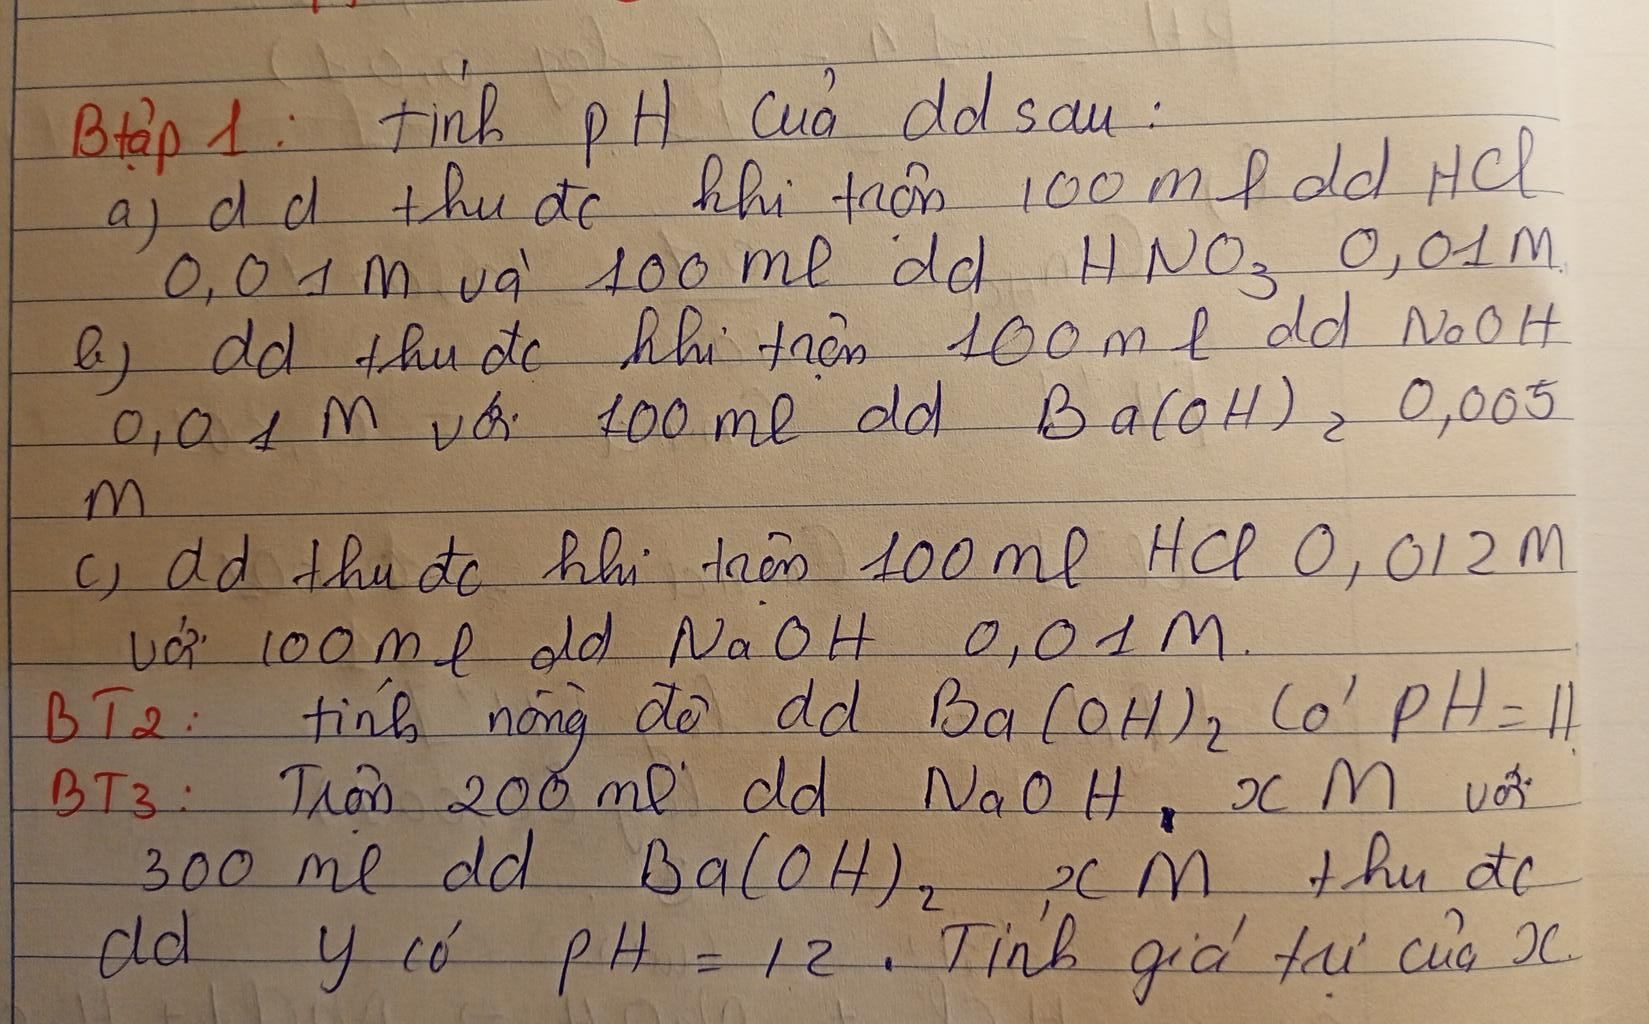 Btập 1: tính pH của dd sau:
a) dd thu đc khi trộn 100ml dd HCl
0,01M và 100ml dd HNO3 0,01M.
b) dd thu đc khi trộn 100ml dd NaOH
0,01M với 100ml dd Ba(OH)2 0,005
M
c) dd thu đc khi trộn 100ml HCl 0,012M
với 100ml dd NaOH 0,01M.
BT2: tính nồng độ dd Ba(OH)2 Có pH=11
BT3: Trộn 200ml dd NaOH xM với
300ml dd Ba(OH)2 xM thu đc
dd y có pH = 12. Tính giá trị của x.